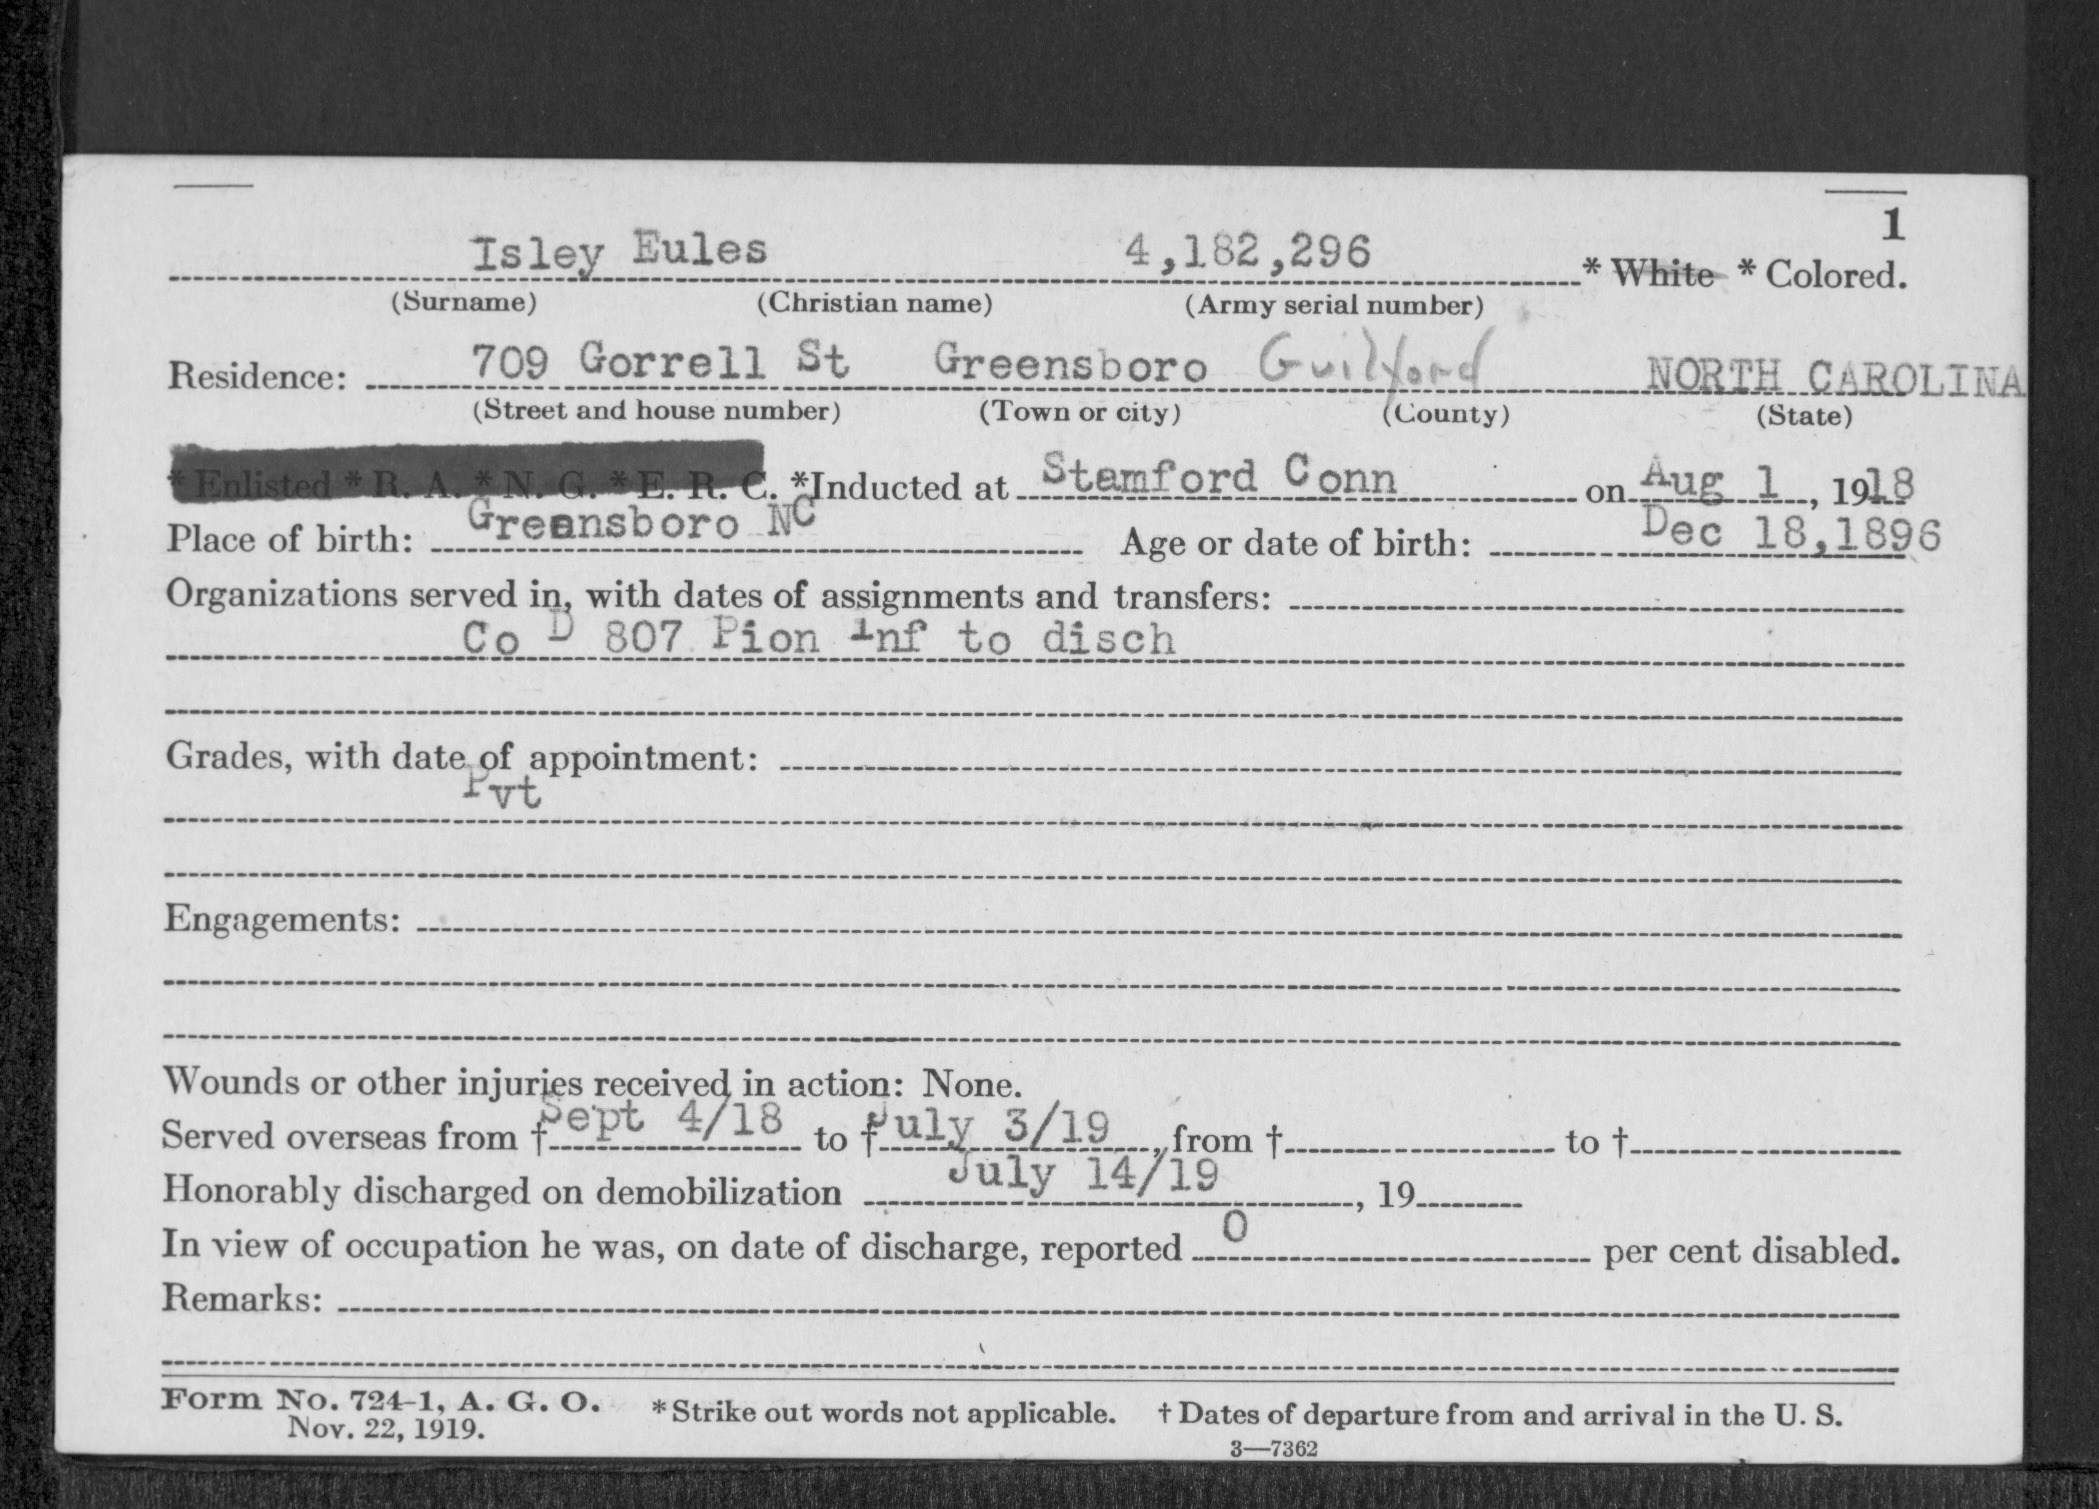 1
Isley Eules 4,182,296 * White * Colored.
(Surname) (Christian name) (Army serial number)
Residence: 709 Gorrell St Greensboro Guilford NORTH CAROLINA
(Street and house number) (Town or city) (County) (State)
* Enlisted * R. A. * N. G. * E. R. C. *Inducted at Stamford Conn on Aug 1, 1918
Place of birth: Greensboro NC Age or date of birth: Dec 18,1896
Organizations served in, with dates of assignments and transfers:
Co D 807 Pion Inf to disch
Grades, with date of appointment:
Pvt
Engagements:
Wounds or other injuries received in action: None.
Served overseas from † Sept 4/18 to † July 3/19, from † to †
Honorably discharged on demobilization July 14/19, 19
In view of occupation he was, on date of discharge, reported 0 per cent disabled.
Remarks:
Form No. 724-1, A. G. O. * Strike out words not applicable. † Dates of departure from and arrival in the U. S.
Nov. 22, 1919.
3—7362